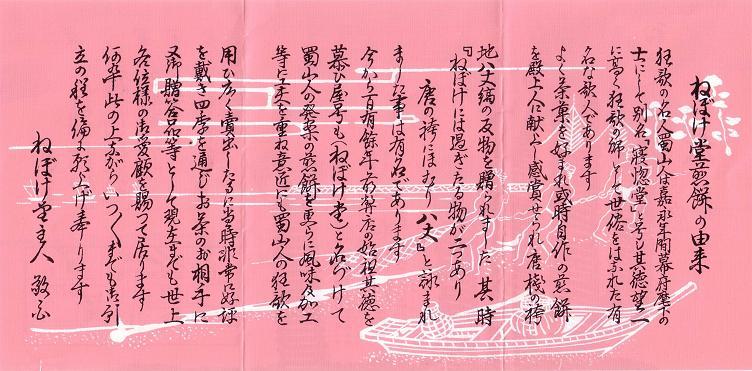 ねぼけ堂煎餅の由来
狂歌の名人蜀山人は嘉永年間幕府麾下の
士にして別名「寝惚堂」と号し其徳望一
に高く狂歌の師として世俗をはなれた有
名な歌人であります
よく茶菓を好まれ或時自作の煎餅
を殿上人に献ぜし感賞せられ唐桟の袴
地八丈縞の反物を贈られました 其時
『ねぼけにほ過ぎたる物が二つあり
唐の袴にほむり八丈』と詠まれ
ました事は有名であります
今から百有余年前弊店の始祖其徳を
慕ひ屋号も(ねぼけ堂)と名づけて
蜀山人の発案の煎餅を更らに風味及加工
等に工夫を重ね意匠にも蜀山人の狂歌を
用ひ広く売出したるに当時非常に好評
を戴き四季を通じお茶のお相手に
又御贈答品等として現在でも世上
各位様の御愛顧を賜って居ります
何卒此の上ながらいつ〱までも御引
立の程を偏に願上げ奉ります
ねぼけ堂主人 敬白